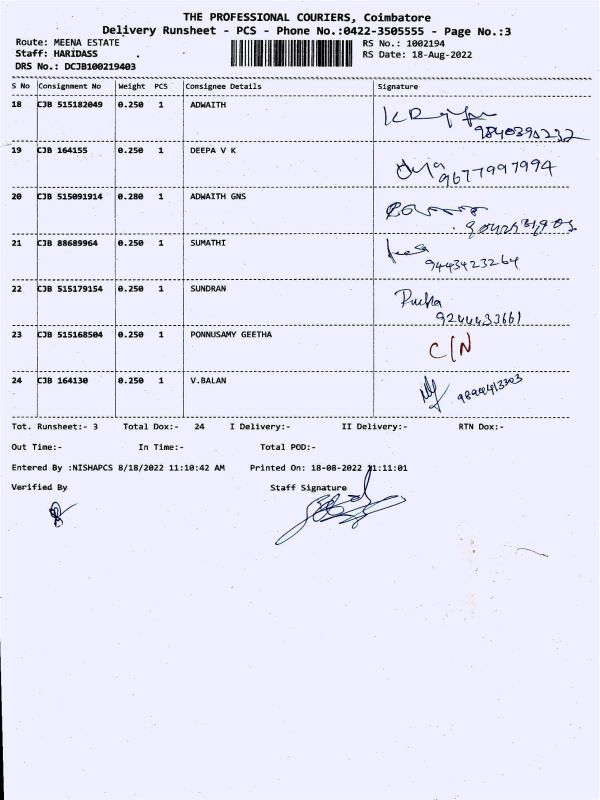 THE PROFESSIONAL COURIERS, Coimbatore
Delivery Runsheet - PCS - Phone No.:0422-3505555 - Page No.:3
Route: MEENA ESTATE RS No.: 1002194
Staff: HARIDASS RS Date: 18-Aug-2022
DRS No.: DCJB100219403
S No Consignment No Weight PCS Consignee Details Signature
18 CJB 515182049 0.250 1 ADWAITH
9840390232
19 CJB 164155 0.250 1 DEEPA V K
9677997994
20 CJB 515091914 0.280 1 ADWAITH GNS
21 CJB 88689964 0.250 1 SUMATHI
9443423264
22 CJB 515179154 0.250 1 SUNDRAN
9244433661
23 CJB 515168504 0.250 1 PONNUSAMY GEETHA C/N
24 CJB 164130 0.250 1 V.BALAN
Tot. Runsheet:- 3 Total Dox:- 24 I Delivery:- II Delivery:- RTN Dox:-
Out Time:- In Time:- Total POD:-
Entered By :NISHAPCS 8/18/2022 11:10:42 AM Printed On: 18-08-2022 11:11:01
Verified By Staff Signature